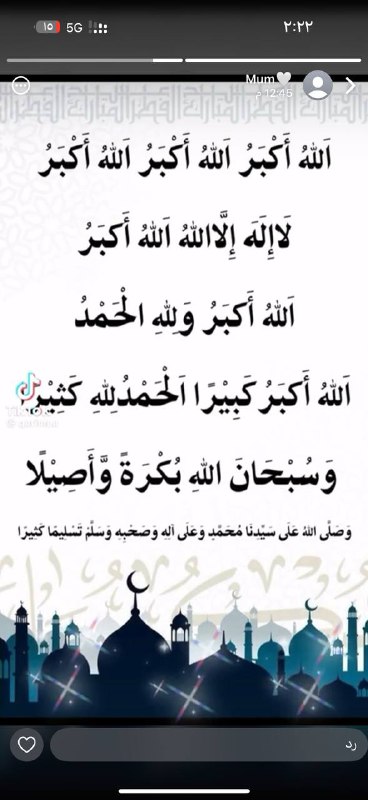 ٢:٢٢
5G ١٥
Mum🤍
12:45 م
اَللهُ أَكْبَرُ اَللهُ أَكْبَرُ اَللهُ أَكْبَرُ
لَاإِلَهَ إِلَّااللهُ اَللهُ أَكبَرُ
اَللهُ أَكبَرُ وَلِلهِ الْحَمْدُ
اَللهُ أَكبَرُ كَبِيْرًا اَلْحَمْدُلِلهِ كَثِيْرًا
TikTok
وَسُبْحَانَ اللهِ بُكْرَةً وَّأَصِيْلًا
وَصَلَّى اللهُ عَلَى سَيِّدِنَا مُحَمَّدٍ وَعَلَى آلِهِ وَصَحْبِهِ وَسَلَّمْ تَسْلِيمًا كَثِيْرًا
رد